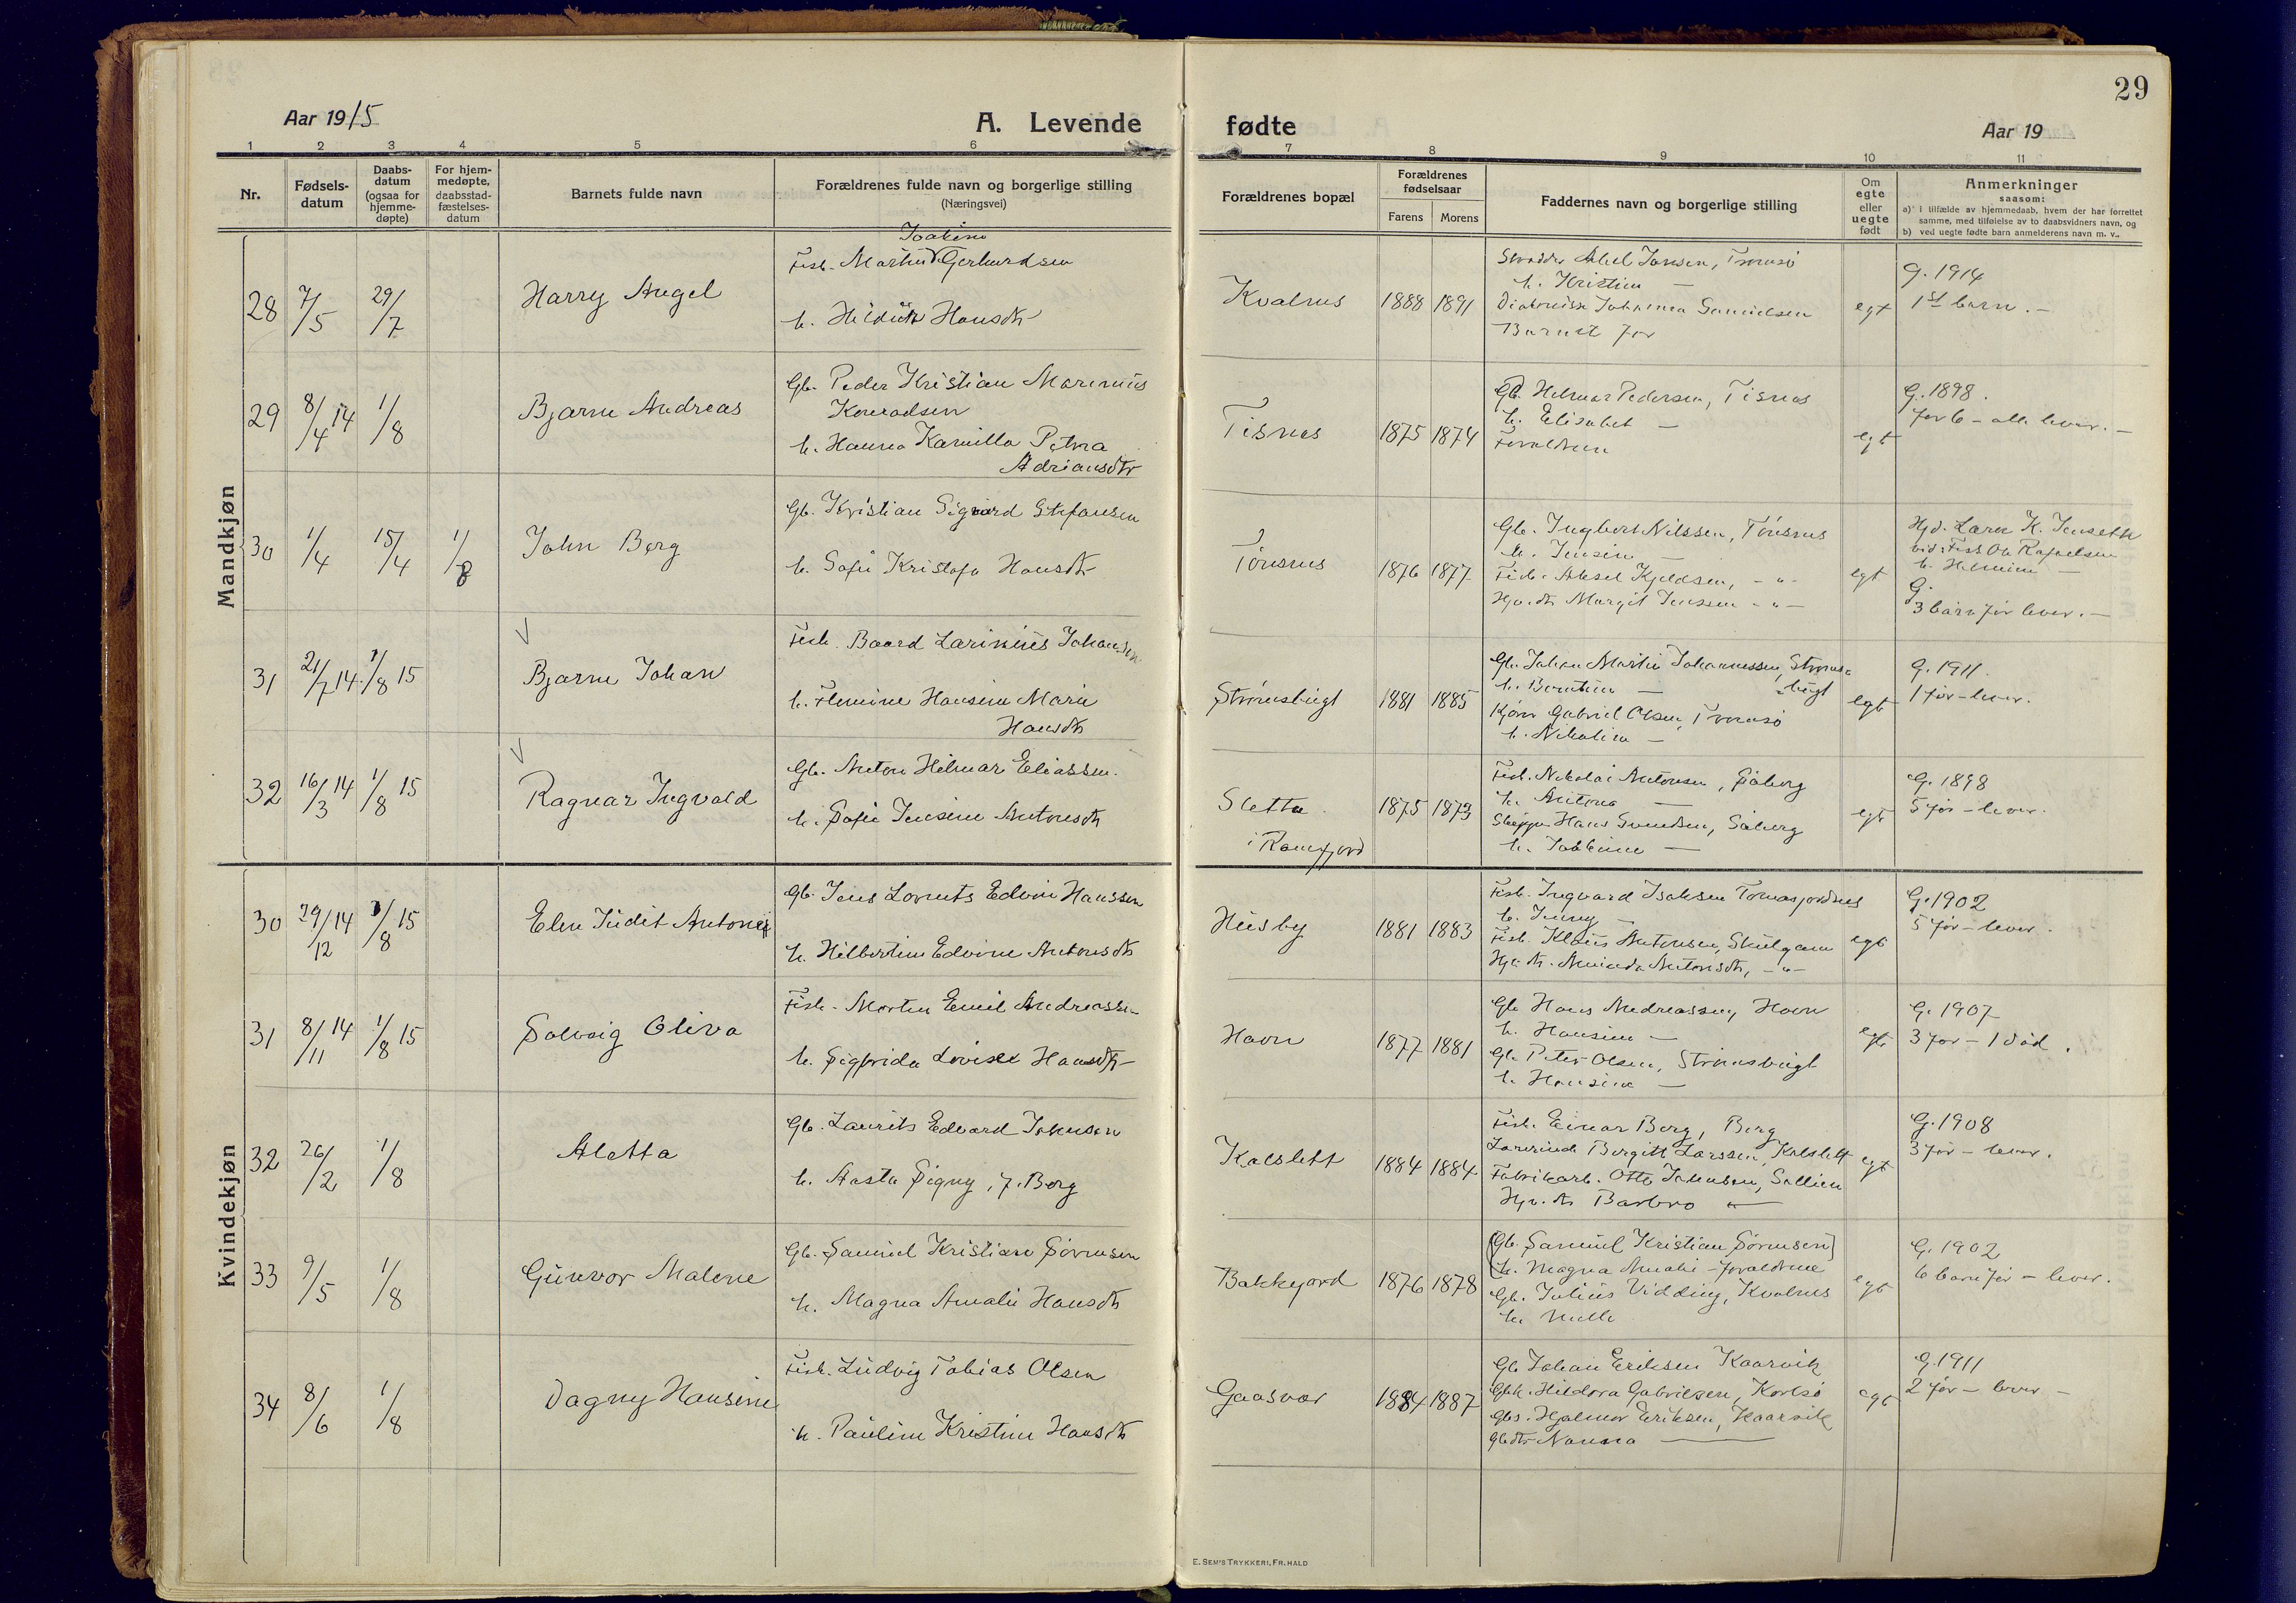 29
Aar 1915
A. Levende
fødte
Aar 19
1 2 3 4 5 6 7 8 9 10 11
Nr.
Fødsels-
datum
Daabs-
datum
(ogsaa for
hjemme-
døpte)
For hjem-
medøpte,
daabsstad-
fæstelses-
datum
Barnets fulde navn
Forældrenes fulde navn og borgerlige stilling
(Næringsvei)
Forældrenes bopæl
Forældrenes
fødselsaar
Farens Morens
Faddernes navn og borgerlige stilling
Om
egte
eller
uegte
født
Anmerkninger
saasom:
a) i tilfælde av hjemmedaab, hvem der har forrettet
samme, med tilføielse av to daabsvidners navn, og
b) ved uegte fødte barn anmelderens navn m. v.
Mandkjøn
28 7/5 29/7
Harry Angel
Joakim
Fisk. Martin Gerhardsen
h. Hansdtr
Kvalnes 1888 1891
Abel Jansen, Tromsø
h. Kristine —
Diakonisse Johanna Samuelsen
Barnet før
egt
G. 1914
1st barn. -
29 8/4 14 1/8
Bjarne Andreas
Gb. Peder Kristian Marenius
Konradsen
h. Hanna Kamilla Petra
Adriansdtr
Tisnes 1875 1874
Gb. Hilmar Pedersen, Tisnes
h. Elisabet —
Forældrene
egt
G. 1898.
før 6 - alle lever. -
30 1/4 15/4 1/8
John Berg
Gb. Kristian Sigvard Stefansen
h. Sofie Kristofa Hansdtr
Tønsnes 1876 1877
Gb. Ingbert Nilssen, Tønsnes
h. Jensine —
Fisk. Aksel Kjeldsen, - " -
Margit Jenssen - " -
egt
Hjd. Lærer K. Jenseth
vid: Fisk Ole Rafaelsen
h. —
G.
3 barn før lever. -
31 21/7 14. 1/8 15
Bjarne Johan
Fisk. Baard Larinius Johansen
h. Flemine Hansine Marie
Hansdtr
Strømsbugt 1881 1885
Gb. Johan Martin Johannessen, Strøms-
h. Berntine — bugt
Gabriel Olsen, Tromsø
h. Nikoline —
egt
G. 1911.
1 før - lever.
32 16/3 14 1/8 15
Ragnar Ingvald
Gb. Anton Hilmar Eliassen.
h. Sofie Jensine Antonsdtr
Sletta
i Ramfjord
1875 1873
Fisk. Nikolai Antonsen, Søberg
h. Antona —
Hans Svendsen, Søberg
h. —
egt
G. 1898
5 før - lever.
Kvindekjøn
30 29/12 14 1/8 15
Elen Judit Antonie
Gb. Jens Lornts Edvin Hanssen
h. Hilbertine Edvine Antonsdtr
Husby 1881 1883
Fisk. Ingvard Isaksen Tomasjordnes
h. Jenny —
Fisk. Antonsen, Skulgam
Antonsdtr, - " -
egt
G. 1902
5 før - lever.
31 8/11 14 1/8 15
Solveig Oliva
Fisk. Morten Emil Andreassen
h. Sigfrida Lovise Hansdtr
Havn 1877 1881
Gb Hans Andreassen, Havn
h. Hansine —
Gb. Peter Olsen, Strømsbugt
h. Hansine —
egt
G. 1907
3 før - 1 død.
32 26/2 1/8
Aletta
Gb. Laurits Edvard Johnsen
h. Aasta Signy, f. Berg
Kalslett 1884 1884
Fisk. Einar Berg, Berg
Lærerinde Bergitte Larssen, Kalslett
Fabrikarb. Otto Johnsen,
Barbro
egt
G. 1908
3 før - lever.
33 9/5 1/8
Gunvor Malene
Gb. Samuel Kristian Sørensen
h. Magna Amalie Hansdtr
Bakkejord 1876 1878
(Gb. Samuel Kristian Sørensen)
h. Magna Amalie - forældrene
Gb. Julius Vidding, Kvalnes
h.
egt
G. 1902
6 barn før - lever.
34 8/6 1/8
Dagny Hansine
Fisk. Ludvig Tobias Olsen
h. Pauline Kristine Hansdtr
Gaasvær 1884 1887
Gb Johan Eriksen Kaarvik
Hildora Gabrielsen,
Gbs. Hjalmar Eriksen, Kaarvik
Gbdtr Nanna —
egt
G. 1911
2 før - lever -
E. SEM'S TRYKKERI, FR.HALD